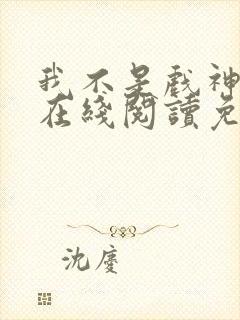 我不是戲神
在綫閱讀免
沈慶